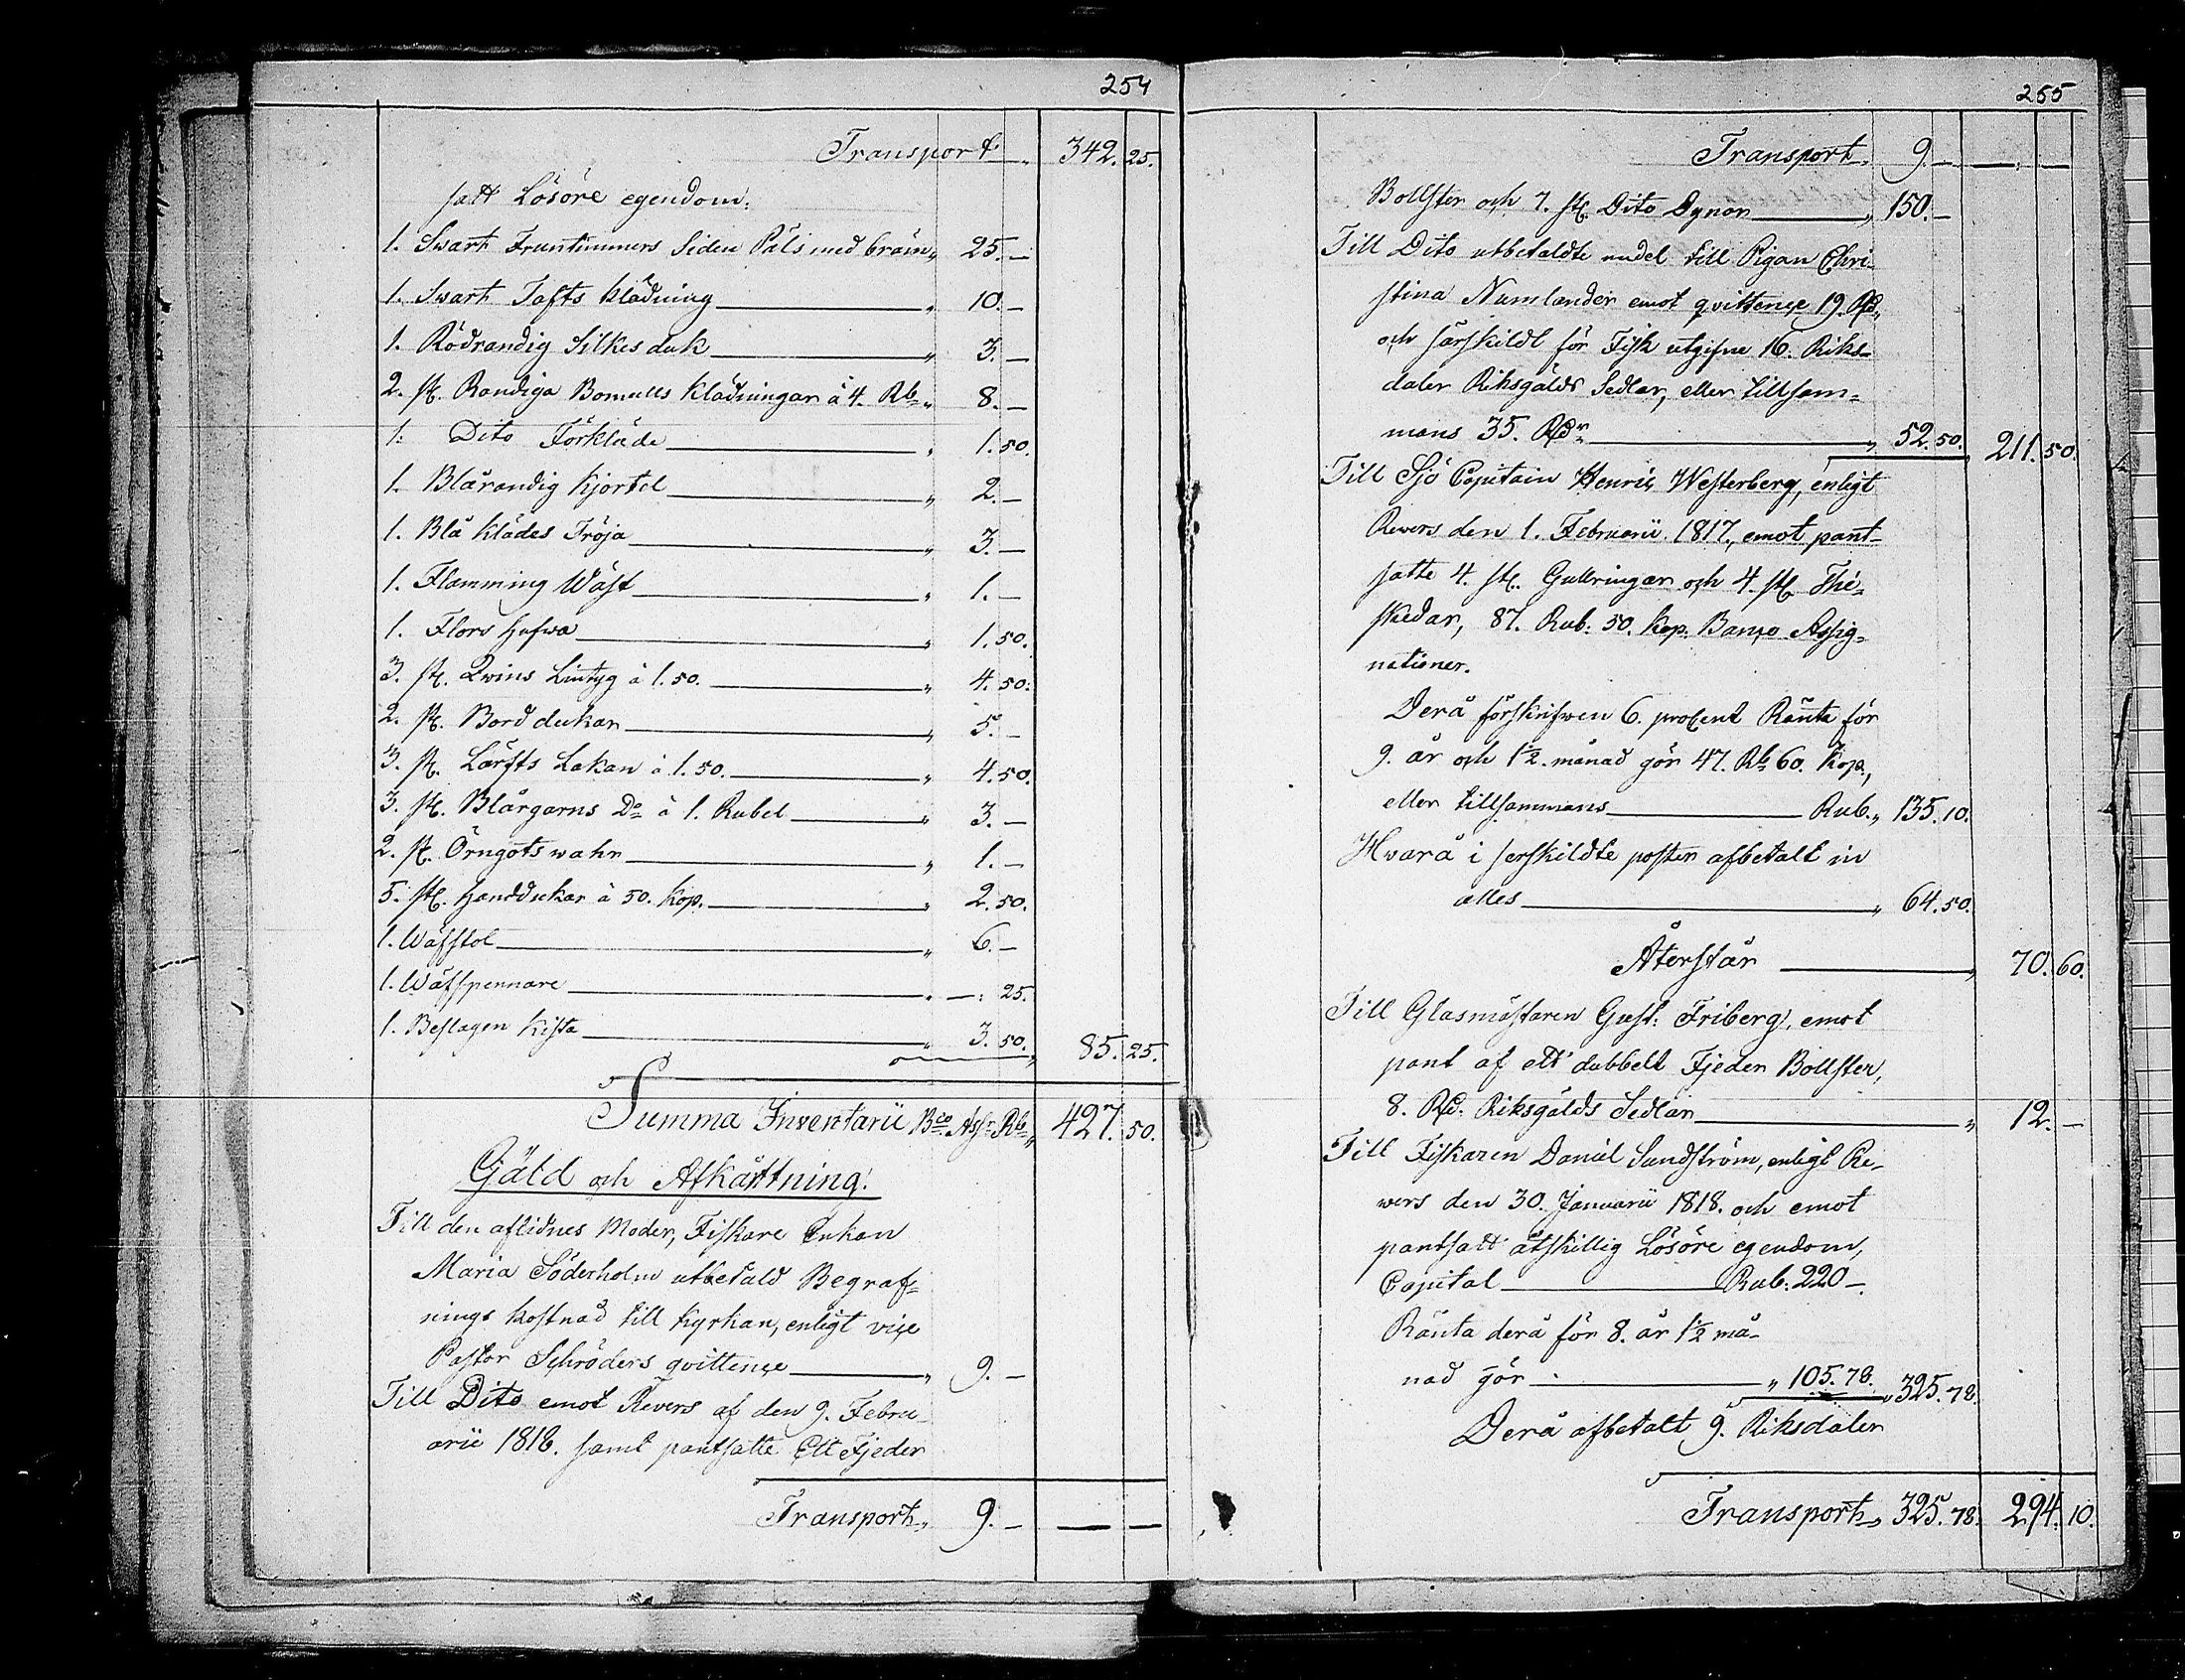 254
Transport „ 342. 25.
satt Lösöre egendom.
1. Swart Fruntimmers Siden Päls med bräm „ 25. —
1. Swart Tafts Klädning „ 10. —
1. Rödrandig Silkes duk „ 3. —
2. st. Randiga Bomulls Klädningar à 4. Rb „ 8. —
1. Dito Förkläde „ 1. 50.
1. Blårandig Kjortel „ 2. —
1. Blå Klädes Tröja „ 3. —
1. Flamming Wäst „ 1. —
1. Flors Hufwa „ 1. 50.
3. st. Qwins Lintyg à 1. 50. „ 4. 50.
2. st. Bord dukar „ 5. —
3. st. Lärfts Lakan à 1. 50. „ 4. 50.
3. st. Blårgarns Do à 1. Rubel „ 3. —
2. st. Örngots wahr „ 1. —
5. st. Handdukar à 50. Kop. „ 2. 50.
1. Wäfstol „ 6. —
1. Wäfspennare „ —: 25.
1. Beslagen Kista „ 3. 50. 85. 25.
Summa Inventarii Bco Assr Rb „ 427. 50.
Gäld och Afkårttning.
Till den aflidnes Moder, Fiskare Enkan
Maria Söderholm utbetald Begraf=
nings kostnad till Kyrkan, enligt viçe
Pastor Schröders qvittençe „ 9. —
Till Dito emot Revers af den 9. Febru=
arii 1818. samt pantsatte Ett Fjeder
Transport „ 9. — — —
255
Transport „ 9. — — —
Bollster och 7. st. Dito Dynor „ 150. —
Till Dito utbetaldte medel till Pigan Chri=
stina Numlander emot qvittençe 19. Rd
och särskildt för Fisk utgifne 16. Riks=
daler Riksgälds Sedlar, eller tillsam=
mans 35. Rdr „ 52. 50. 211. 50.
Till Sjö Capitain Henric Westerberg, enligt
Revers den 1. Februarii 1817., emot pant=
satte 4. st. Gullringar och 4. st. Thé=
skedar, 87. Rub: 50. Kop. Banço Assig=
nationer.
Derå förskrifwen 6. proCent Ränta för
9. år och 1½. månad gör 47. Rb 60. Kop.,
eller tillsammans Rub. „ 135. 10.
Hwarå i serskildte poster afbetalt in
alles „ 64. 50.
Återstår „ 70. 60.
Till Glasmästaren Gust: Friberg, emot
pant af ett dubbelt Fjeder Bollster,
8. Rd: Riksgälds Sedlar „ 12. —
Till Fiskaren Daniel Sundström, enligt Re=
vers den 30. Januarii 1818. och emot
pantsatt åtskillig Lösöre egendom,
Capital Rub: 220 —.
Ränta derå för 8. år 1½ må=
nad gör „ 105. 78. „ 325. 78.
Derå afbetalt 9. Riksdaler
Transport „ 325. 78. 294. 10.